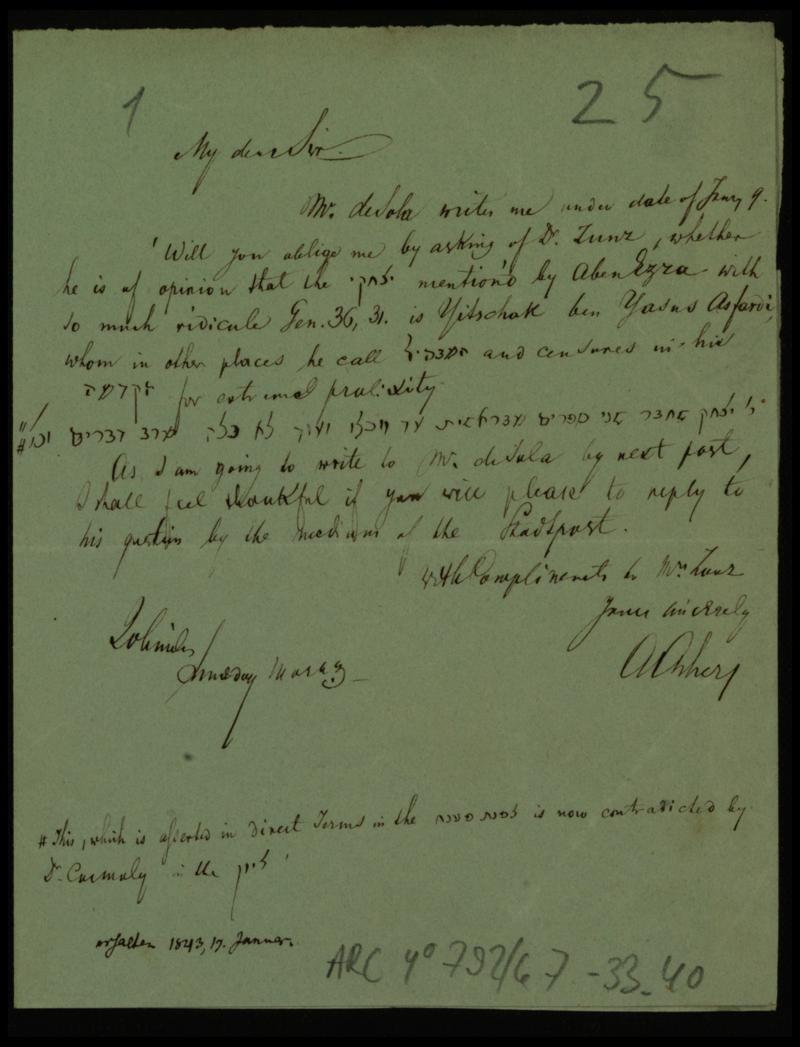 1
25
My dear Sir.
Mr. deSola writes me under date of Jany 9.
'Will you oblige me by asking of Dr. Zunz, whether
he is of opinion that the יצחקי mention'd by AbenEzra with
so much ridicule Gen. 36, 31. is Yitschak ben Yasus Asfardi,
whom in other places he call and censures in his
הקדמה for extremel prolixity.
ר' יצחק אחד אני ספרים עד ויכלו ועוד לא כלה דברים וכו' #
As I am going to write to Mr. deSola by next post,
I shall feel thankful if you will please to reply to
his question by the medium of the Stadtpost.
with Compliments to Mrs Zunz
Yours sincerely
AAsher
morng
# This, which is asserted in direct Terms in the צפנת פענח is now contradicted by
Dr. Carmoly in the ציון '
erhalten 1843, 17. Januar.
ARC 4° 792/G 7 -33-40